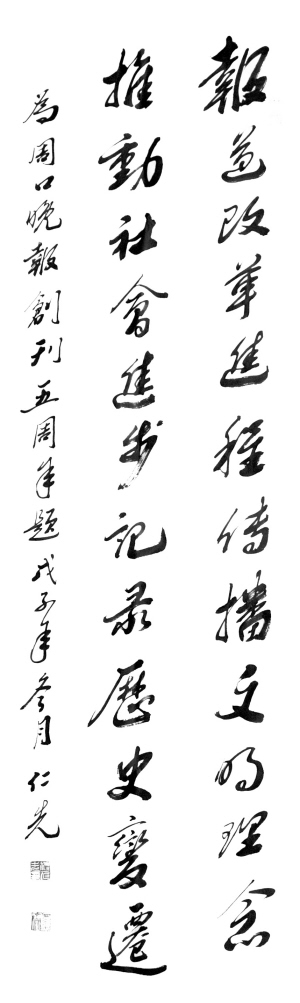 報道改革進程傳播文明理念
推動社會進步記录歷史變遷
為周口晚報創刊五周年題戊子年冬月仁先